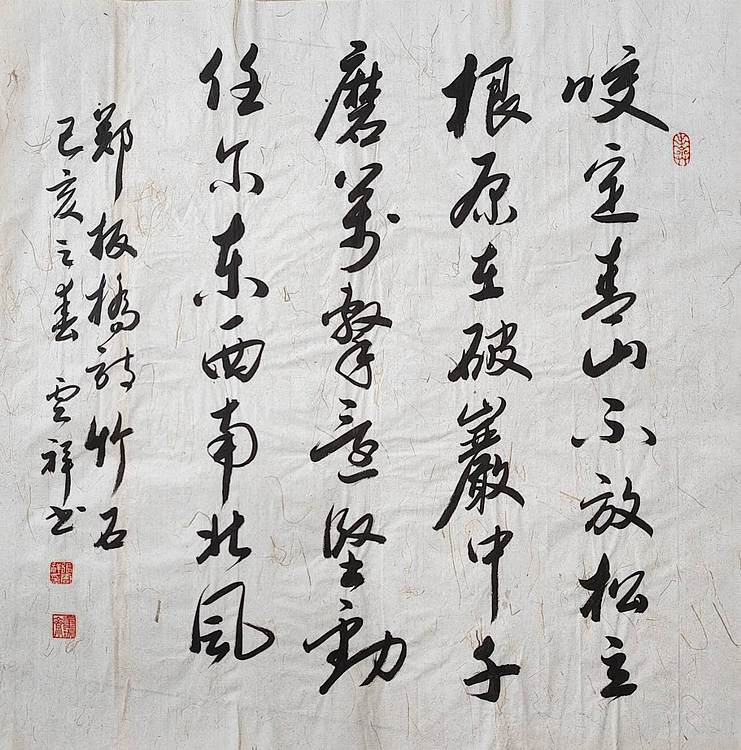 咬定青山不放松立
根原在破巖中千
磨萬擊還堅勁
任尔東西南北風
鄭板橋詩竹石
己亥之春 雲祥书